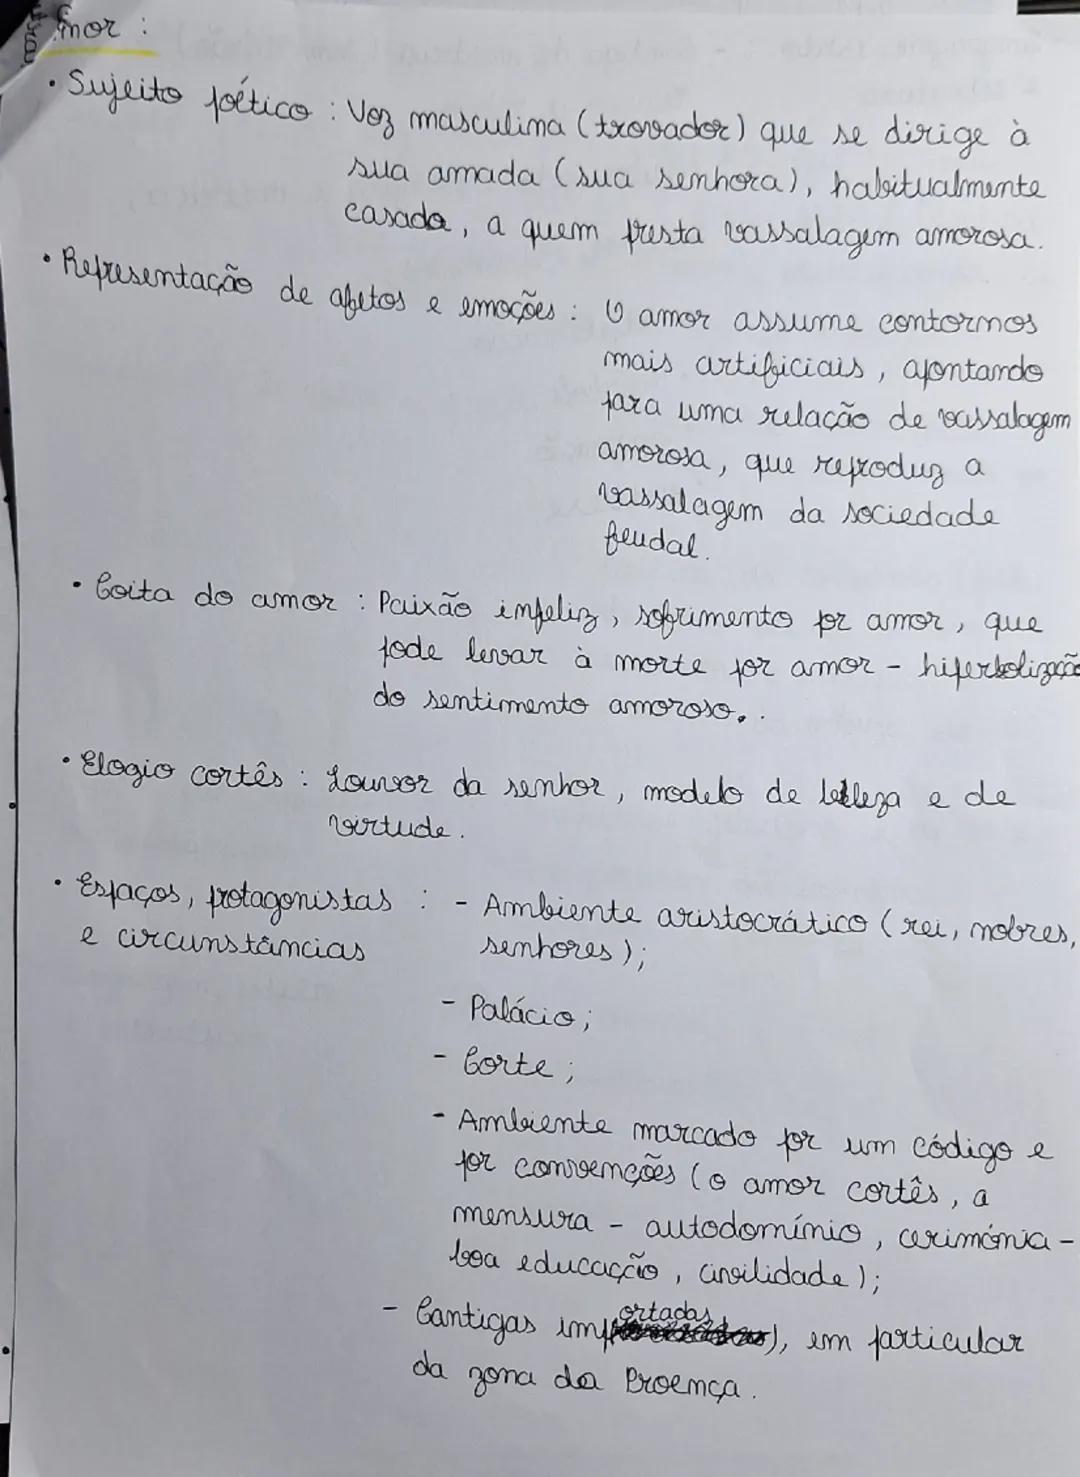 Amor :
• Sujeito poético : Voz masculina (trovador) que se dirige à
sua amada (sua senhora), habitualmente
casada, a quem presta vassalagem amorosa.
• Representação de afetos e emoções : O amor assume contornos
mais artificiais, apontando
para uma relação de vassalagem
amorosa, que reproduz a
vassalagem da sociedade
feudal.
• Coita do amor : Paixão infeliz, sofrimento por amor, que
pode levar à morte por amor - hiperbolização
do sentimento amoroso..
• Elogio cortês : Louvor da senhor, modelo de beleza e de
virtude.
• Espaços, protagonistas : - Ambiente aristocrático (rei, nobres,
e circunstâncias senhores);
- Palácio;
- Corte;
- Ambiente marcado por um código e
por convenções (o amor cortês, a
mensura - autodomínio, cerimónia -
boa educação, civilidade);
- Cantigas importadas), em particular
da zona da Proença.